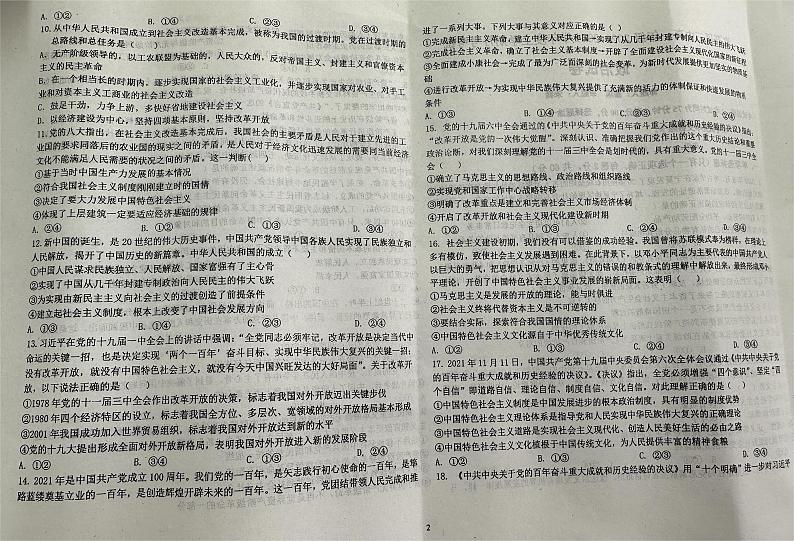 A. ①② B. ①④ C. ②③ D. ③④
10. 从中华人民共和国成立到社会主义改造基本完成，被称为我国的过渡时期。党在过渡时期的
总路线和总任务是（ ）
A. 无产阶级领导的，以工农联盟为基础的，人民大众的，反对帝国主义、封建主义和官僚资本
主义的民主革命
B. 在一个相当长的时期内，逐步实现国家的社会主义工业化，并逐步实现国家对农业、对手工
业和对资本主义工商业的社会主义改造
C. 鼓足干劲，力争上游，多快好省地建设社会主义
D. 以经济建设为中心，坚持四项基本原则，坚持改革开放
11. 党的八大指出，在社会主义改造基本完成后，我国社会的主要矛盾是人民对于建立先进的工
业国的要求同落后的农业国的现实之间的矛盾，是人民对于经济文化迅速发展的需要同当前经济
文化不能满足人民需要的状况之间的矛盾，这一判断（ ）
①基于当时中国生产力发展的基本情况
②符合我国社会主义制度刚刚建立时的国情
③决定了要大力发展中国特色社会主义
④体现了上层建筑一定要适应经济基础的规律
A. ②④ B. ①② C. ①③ D. ③④
12. 新中国的诞生，是 20 世纪的伟大历史事件，中国共产党领导中国各族人民实现了民族独立和
人民解放，揭开了中国历史的新篇章。中华人民共和国的成立（ ）
①中国人民谋求民族独立、人民解放、国家富强有了主心骨
②实现了中国从几千年封建专制政治向人民民主的伟大飞跃
③为实现由新民主主义向社会主义的过渡创造了前提条件
④建立起社会主义制度，根本上改变了中国社会发展方向
A. ①③ B. ①④ C. ②③ D. ②④
13. 习近平在党的十九届一中全会上的讲话中强调：“全党同志必须牢记，改革开放是决定当代中
命运的关键一招，也是决定实现‘两个一百年’奋斗目标、实现中华民族伟大复兴的关键一招；
没有改革开放，就没有中国特色社会主义，就没有今天中国兴旺发达的大好局面”。关于改革开
放，以下说法正确的是（ ）
①1978 年党的十一届三中全会作出改革开放的决策，标志着我国对外开放迈出关键步伐
②1980 年四个经济特区的设立，标志着我国全方位、多层次、宽领域的对外开放格局基本形成
③2001 年我国成功加入世界贸易组织，标志着我国对外开放达到新的水平
④党的十九大提出形成全面对外开放新格局，表明我国对外开放进入新的发展阶段
A. ①② B. ③④ C. ②③ D. ①④
14. 2021 年是中国共产党成立 100 周年。我们党的一百年，是矢志践行初心使命的一百年，是筚
路蓝缕奠基立业的一百年，是创造辉煌开辟未来的一百年。这一百年，党团结带领人民完成和推
进了一系列大事，下列大事与其意义对应正确的是（ ）
①完成新民主主义革命，建立中华人民共和国→实现了从几千年封建专制向人民民主的伟大飞跃
②完成社会主义革命，确立了社会主义基本制度→开启了全面建设社会主义现代化国家的新征程
③全面建成小康社会→完成了最为广泛而深刻的社会变革，为新时代发展提供更加坚实的物质基
础
④进行改革开放→为实现中华民族伟大复兴提供了充满新的活力的体制保证和快速发展的物质
条件
A. ①③ B. ①④ C. ②③ D. ②④
15. 党的十九届六中全会通过的《中共中央关于党的百年奋斗重大成就和历史经验的决议》指出，
“改革开放是党的一次伟大觉醒”。深刻认识、准确把握我们党作出的这个重大历史结论和重要
政治论断，对我们深刻理解党的十一届三中全会是划时代的，具有重大意义。党的十一届三中全
会（ ）
①确立了马克思主义的思想路线、政治路线和组织路线
②实现党和国家工作中心战略转移
③明确了改革重点是建立和完善社会主义市场经济体制
④开启了改革开放和社会主义现代化建设新时期
A. ①② B. ①③ C. ②④ D. ③④
16. 社会主义建设初期，我们没有可以借鉴的成功经验。我国曾将苏联模式奉为榜样，在理论上
多有模仿，致使社会主义发展遇到困难。在此背景下，以邓小平同志为主要代表的中国共产党人
以巨大的勇气，把思想认识从对马克思主义的错误的和教条式的理解中解放出来，最终形成邓小
平理论，开创了中国特色社会主义事业发展的崭新局面。这表明（ ）
①马克思主义是发展的开放的理论，能与时俱进
②社会主义终将代替资本主义是不可逆转的
③要结合实际，探索符合我国国情的理论体系
④中国特色社会主义文化源自于中华优秀传统文化
A. ①② B. ①③ C. ②④ D. ③④
17. 2021 年 11 月 11 日，中国共产党第十九届中央委员会第六次全体会议通过《中共中央关于党
的百年奋斗重大成就和历史经验的决议》。《决议》指出，全党必须增强“四个意识”、坚定“四
个自信”即道路自信、理论自信、制度自信、文化自信。对此理解正确的是（ ）
①中国特色社会主义制度是中国发展进步的根本政治制度，具有明显的制度优势
②中国特色社会主义理论体系是指导党和人民实现中华民族伟大复兴的正确理论
③中国特色社会主义道路是实现社会主义现代化、创造人民美好生活的必由之路
④中国特色社会主义文化植根于中国传统文化，为人民提供丰富的精神食粮
A. ①② B. ③④ C. ②③ D. ①④
18. 《中共中央关于党的百年奋斗重大成就和历史经验的决议》用“十个明确”进一步对习近平
2